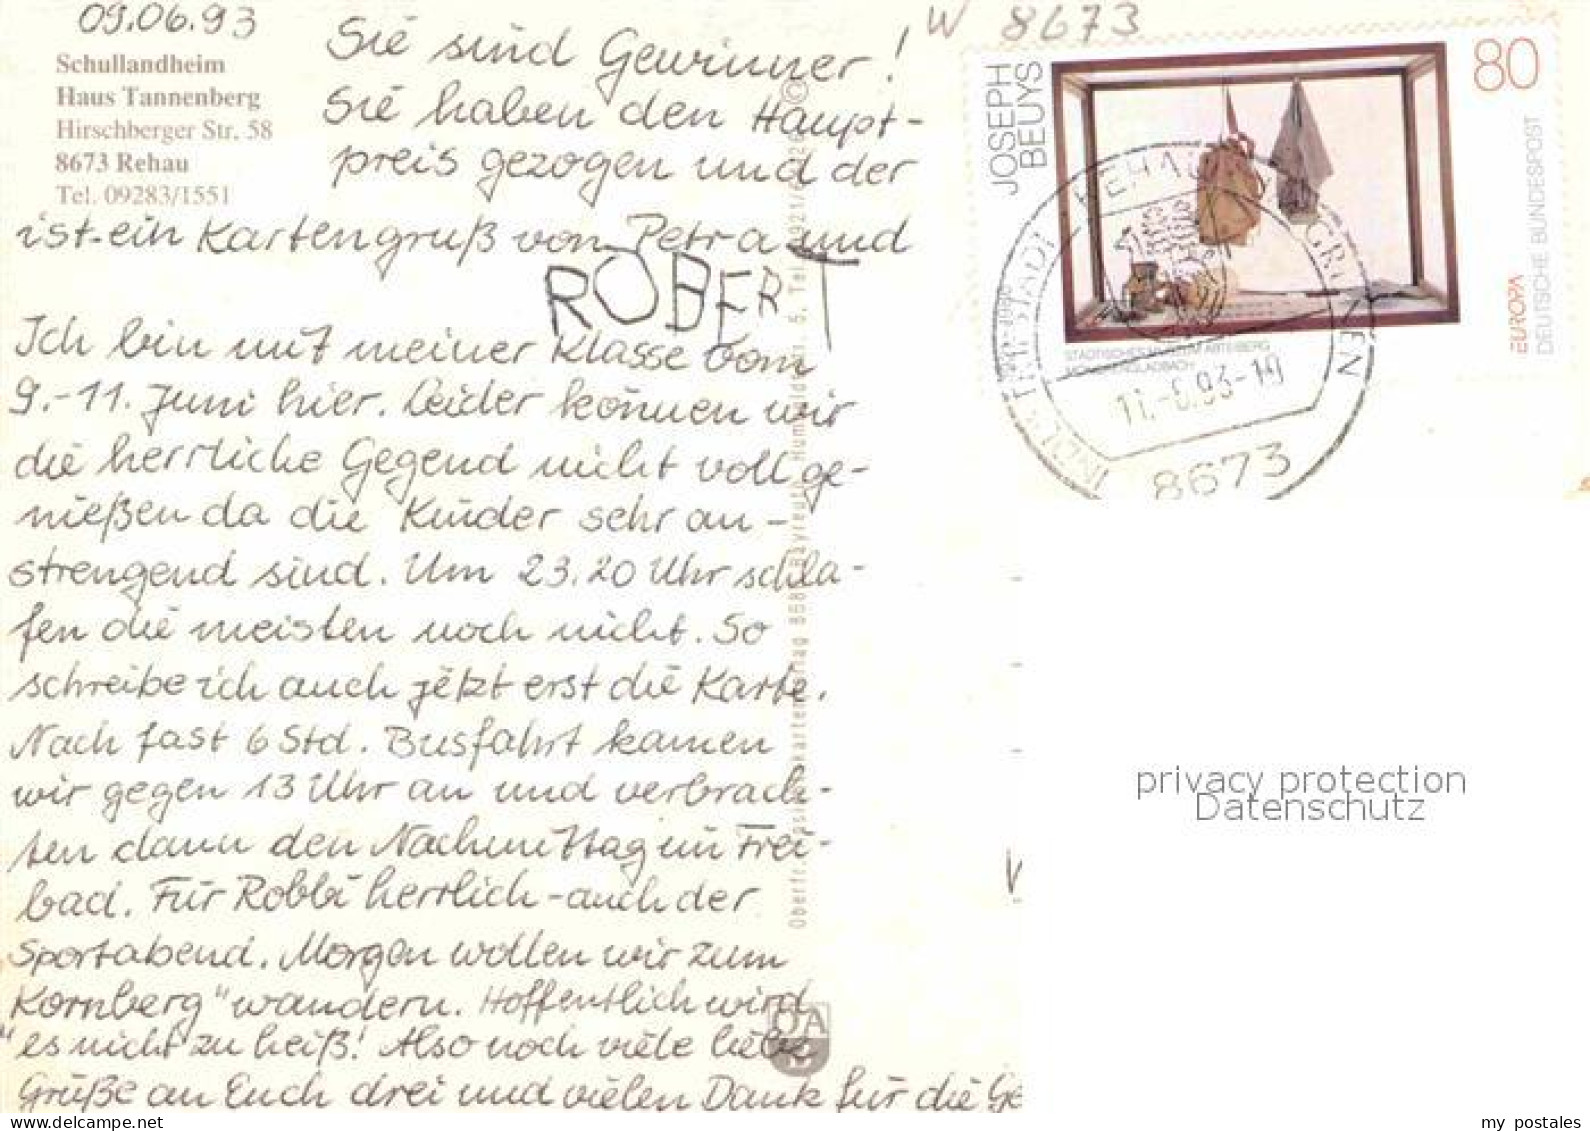 09.06.93
Schullandheim
Haus Tannenberg
Hirschberger Str. 58
8673 Rehau
Tel. 09283/1551
Sie sind Gewinner!
Sie haben den Haupt-
preis gezogen und der
ist ein Kartengruß von Petra und
ROBERT
Ich bin mit meiner Klasse vom
9.-11. Juni hier. Leider können wir
die herrliche Gegend nicht voll ge-
nießen da die Kinder sehr an-
strengend sind. Um 23.20 Uhr schla-
fen die meisten noch nicht. So
schreibe ich auch jetzt erst die Karte.
Nach fast 6 Std. Busfahrt kamen
wir gegen 13 Uhr an und verbrach-
ten dann den Nachmittag im Frei-
bad. Für Robbi herrlich - auch der
Sportabend. Morgen wollen wir zum
"Kornberg" wandern. Hoffentlich wird
es nicht zu heiß! Also noch viele liebe
Grüße an Euch drei und vielen Dank für die Ge
W 8673
JOSEPH
BEUYS
80
STÄDTISCHES MUSEUM ABTEIBERG
MÖNCHENGLADBACH
EUROPA
DEUTSCHE BUNDESPOST
REHAU
11.-6.93-19
8673
OA
privacy protection
Datenschutz
my postales